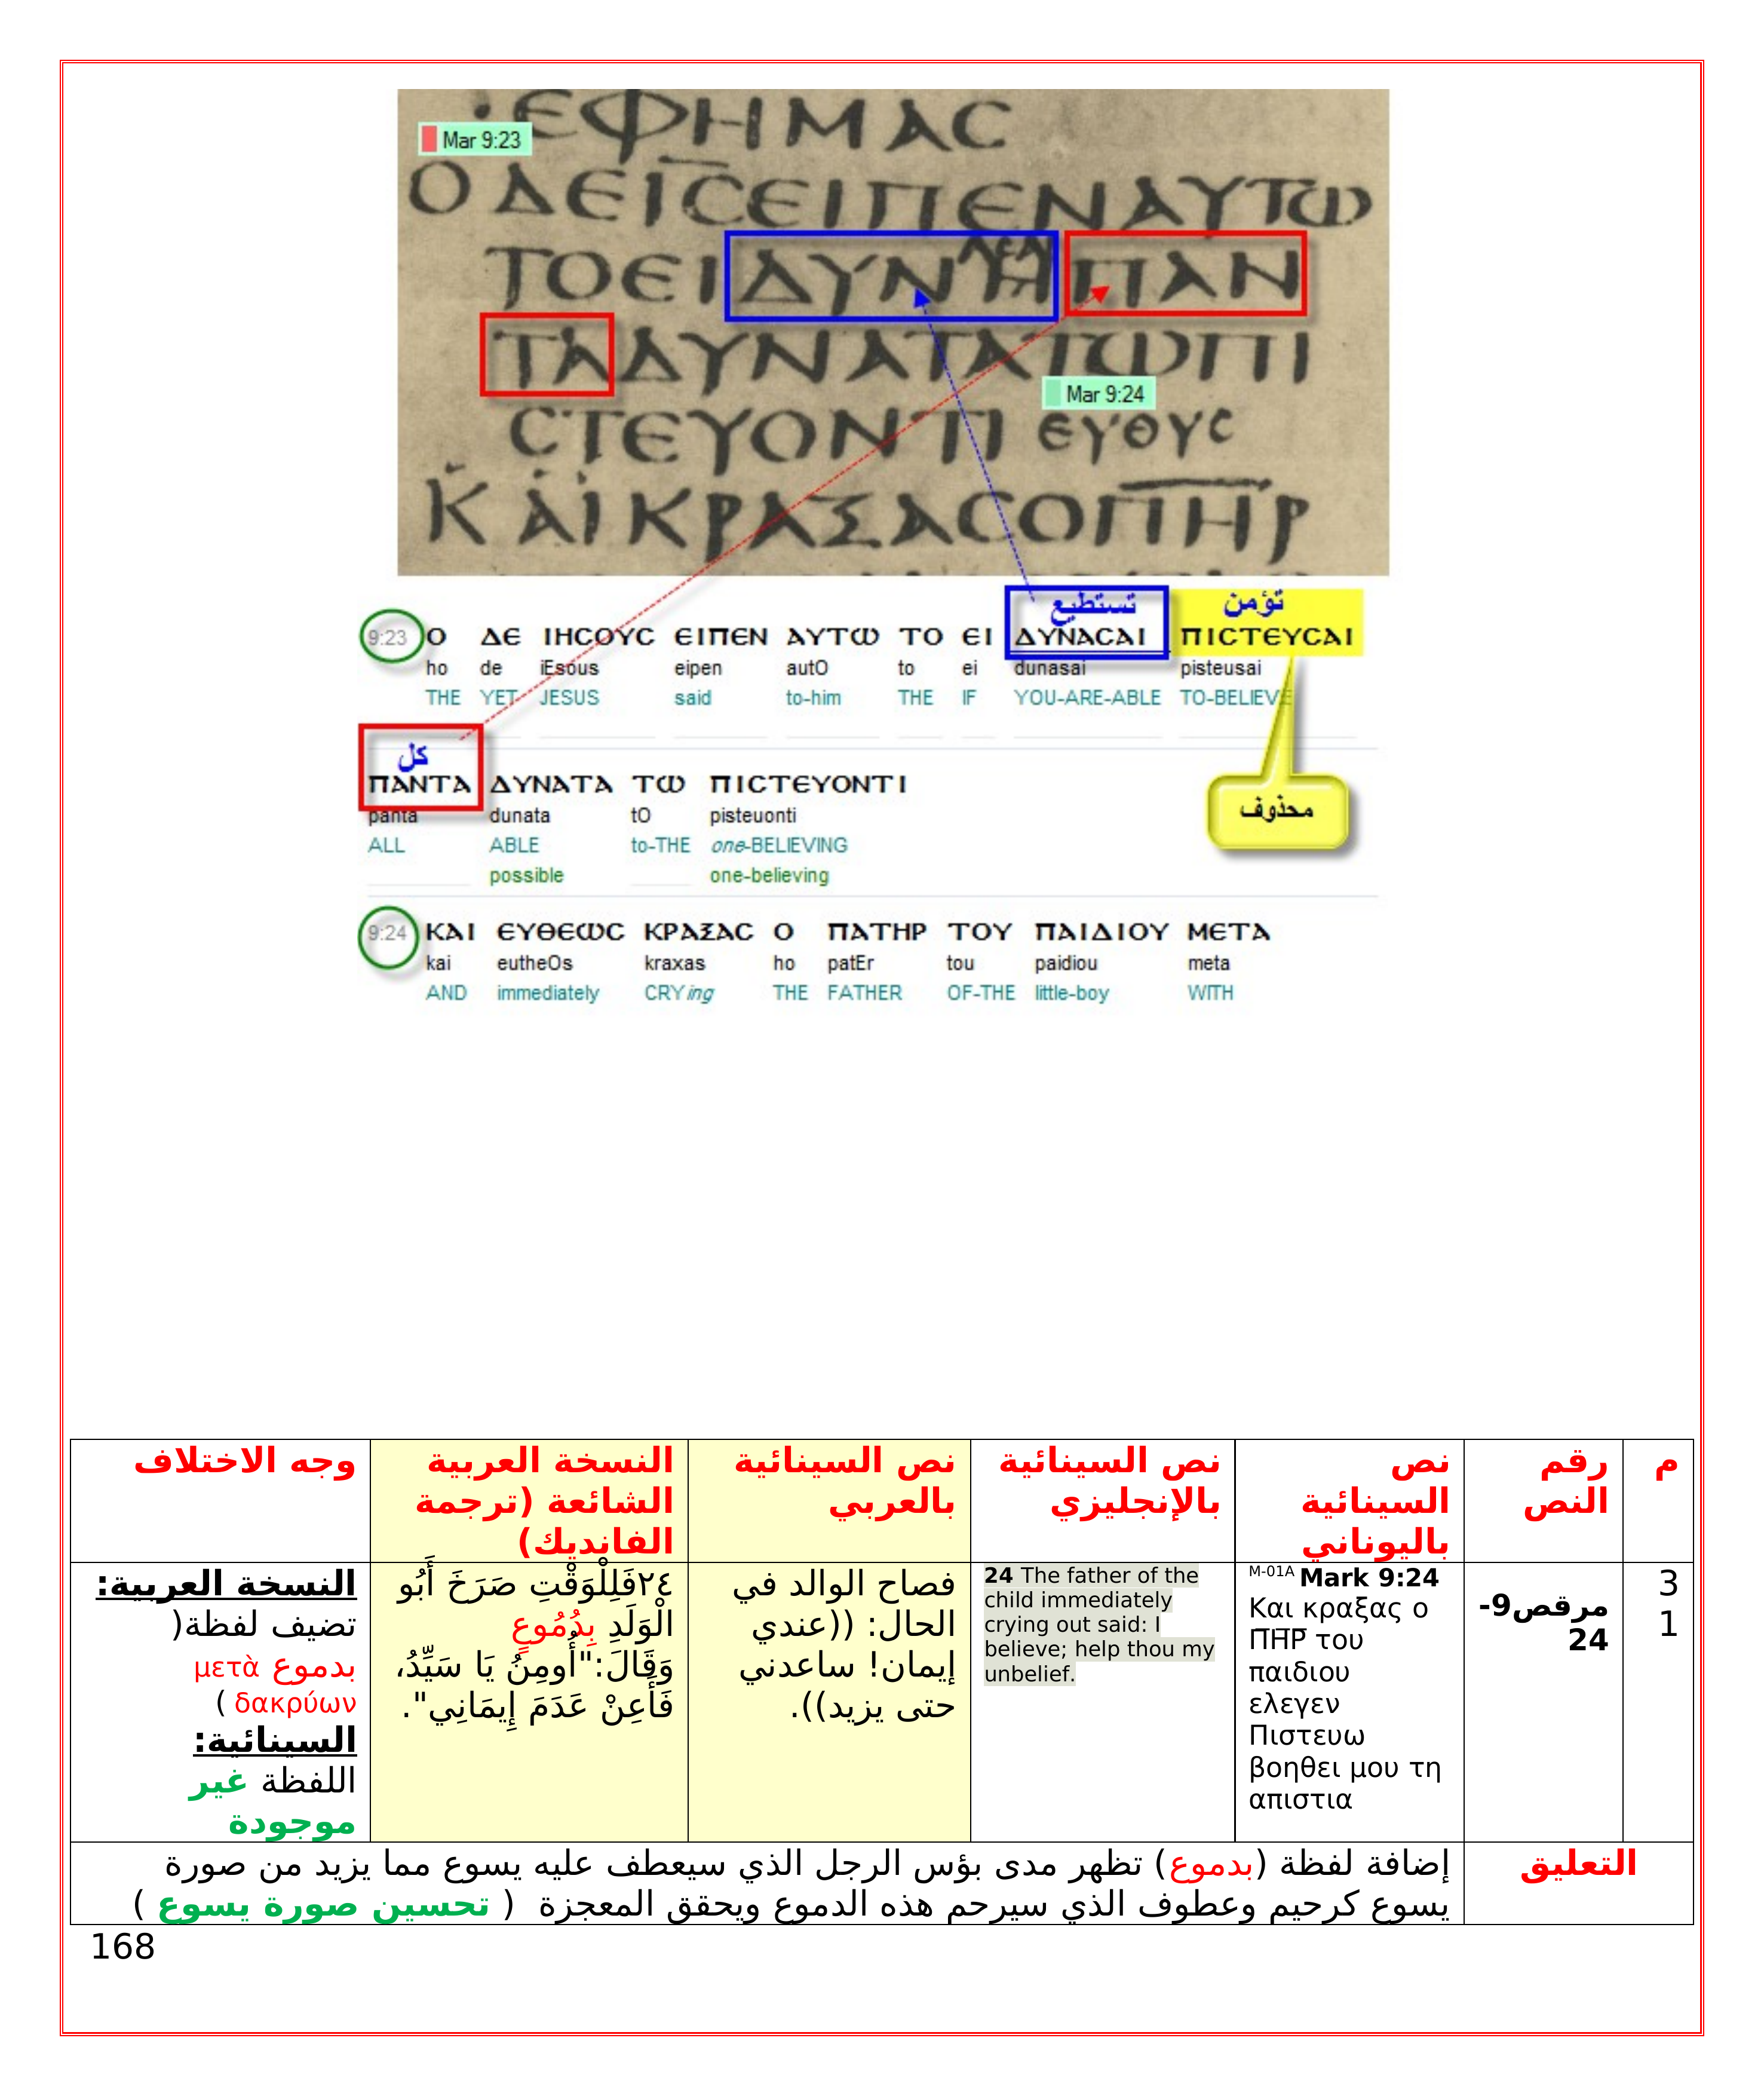 ΕΦΗΜΑC
Mar 9:23
ΟΔΕΙCΕΙΠΕΝΑΥΤω
ΤΟΕΙΔΥΝΗΠΑΝ
ΤΑΔΥΝΑΤΑΤωΠΙ
Mar 9:24
CΤΕΥΟΝΤΙ ΕΥΘΥC
ΚΑΙΚΡΑΞΑCΟΠΗΡ
تستطيع تؤمن
9:23 Ο ΔΕ ΙΗCΟΥC ΕΙΠΕΝ ΑΥΤω ΤΟ ΕΙ ΔΥΝΑCΑΙ ΠΙCΤΕΥCΑΙ
ho de iEsous eipen autO to ei dunasai pisteusai
THE YET JESUS said to-him THE IF YOU-ARE-ABLE TO-BELIEVE
كل
ΠΑΝΤΑ ΔΥΝΑΤΑ Τω ΠΙCΤΕΥΟΝΤΙ
محذوف
panta dunata tO pisteuonti
ALL ABLE to-THE one-BELIEVING
possible one-believing
9:24 ΚΑΙ ΕΥΘΕωC ΚΡΑΞΑC Ο ΠΑΤΗΡ ΤΟΥ ΠΑΙΔΙΟΥ ΜΕΤΑ
kai eutheOs kraxas ho patEr tou paidiou meta
AND immediately CRYing THE FATHER OF-THE little-boy WITH
م
رقم
النص
نص
السينائية
باليوناني
نص السينائية
بالإنجليزي
نص السينائية
بالعربي
النسخة العربية
الشائعة (ترجمة
الفانديك)
وجه الاختلاف
3
1
مرقص9-
24
M-01A Mark 9:24
Και κραξας ο
Π̅Η̅Ρ̅ του
παιδιου
ελεγεν
Πιστευω
βοηθει μου τη
απιστια
24 The father of the
child immediately
crying out said: I
believe; help thou my
unbelief.
فصاح الوالد في
الحال: ((عندي
إيمان! ساعدني
حتى يزيد)).
٢٤فَلِلْوَقْتِ صَرَخَ أَبُو
الْوَلَدِ بِدُمُوعٍ
وَقَالَ:"أُومِنُ يَا سَيِّدُ،
فَأَعِنْ عَدَمَ إِيمَانِي".
النسخة العربية:
تضيف لفظة(
بدموع μετὰ
δακρύων )
السينائية:
اللفظة غير
موجودة
التعليق
إضافة لفظة (بدموع) تظهر مدى بؤس الرجل الذي سيعطف عليه يسوع مما يزيد من صورة
يسوع كرحيم وعطوف الذي سيرحم هذه الدموع ويحقق المعجزة ( تحسين صورة يسوع )
168